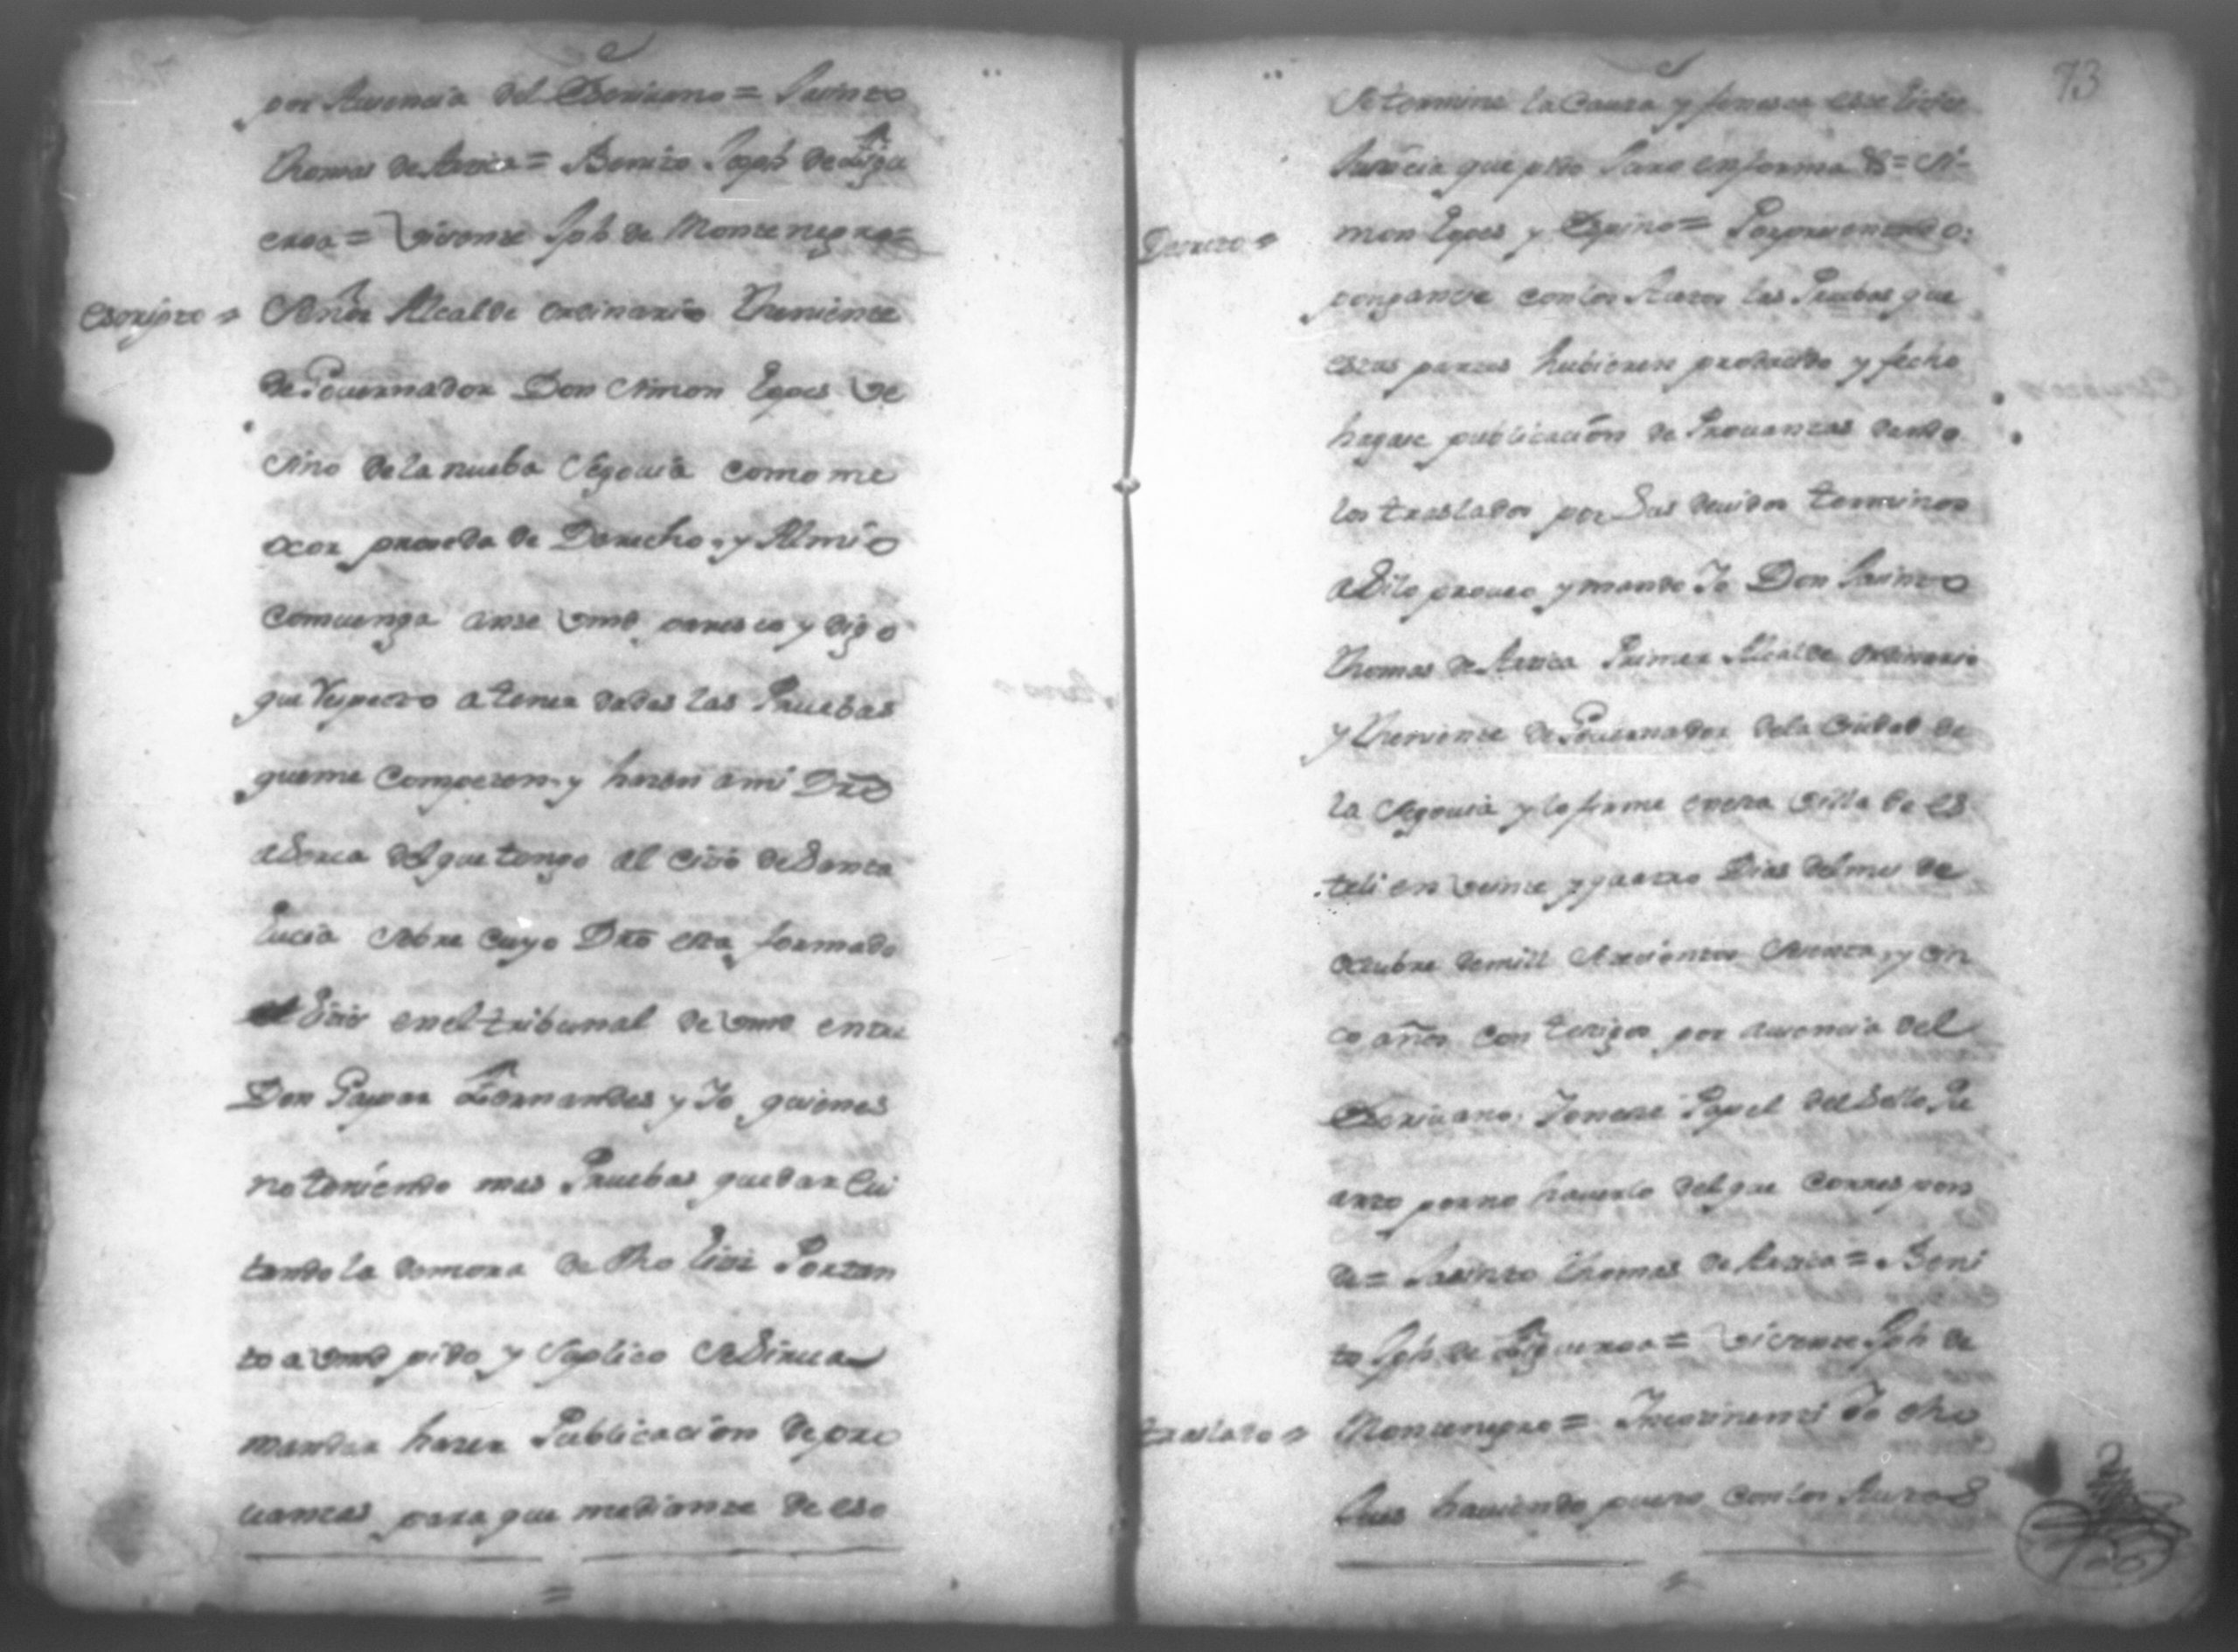 por Ausencia del Escrivano = Jacinto
Thomas de Arrica = Benito Joseph de Figu
eroa = Vicente Jph de Montenegro =
Escripto = Señor Alcalde ordinario Theniente
de Governador Don Simon Lopes Ve
sino de la nueba Segovia como me
jor proseda de Derecho, y Al mio
Comvenga ante Vmd paresco y digo
que respecto a tener dadas las Pruebas
que me Competen, y hasen a mi Dro
aserca del que tengo al citio de Santa
Lucia sobre cuyo Dro esta formado
el Litis en el tribunal de Vmd entre
Don Gaspar Fernandes y Yo, quienes
no teniendo mas Pruebas que dar Evi
tando la demora de dho Litis Portan
to a Vmd pido y Suplico se Sirva
mandar haser Publicacion de pro
vansas para que mediante de eso
73
Se termine la Causa y fenesca este Litis
Justicia que pido Juro en forma &=Si
mon Lopes y Espino = Por presentado
Decreto = ponganse con los Autos las Pruebas que
estas partes hubieren producido y fecho
hagase publicacion de Provansas dando
los traslados por Sus devidos terminos
asi lo proveo y mando Yo Don Jacinto
Thomas de Arrica Primer Alcalde ordinario
y Theniente de Governador de la Ciudad de
la Segovia y lo firme en esta Villa de Es
teli en veinte y quatro Dias del mes de
octubre de mill Setecientos Sesenta, y sin
co años con testigos por ausencia del
Escrivano. Y en este Papel del Sello Qu
arto por no haverlo del que Correspon
de = Jacinto Thomas de Arrica = Beni
to Jph de Figueroa = Vicente Jph de
traslado = Montenegro = Incontinenti Yo dho
Jues haviendo puesto con los Autos